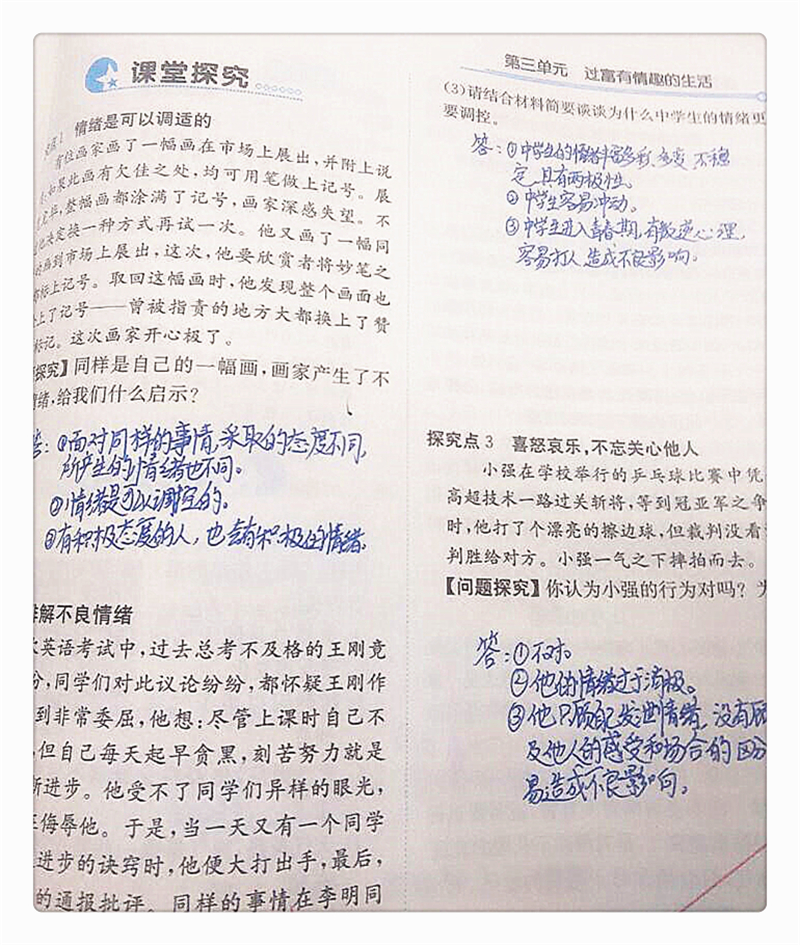 课堂探究
情绪是可以调适的
有位画家画了一幅画在市场上展出,并附上说
如果此画有欠佳之处,均可用笔做上记号。展
整幅画都涂满了记号,画家深感失望。不
决定换一种方式再试一次。他又画了一幅同
的画到市场上展出,这次,他要欣赏者将妙笔之
标上记号。取回这幅画时,他发现整个画面也
上了记号——曾被指责的地方大都换上了赞
标记。这次画家开心极了。
探究】同样是自己的一幅画,画家产生了不
情绪,给我们什么启示?
答:①面对同样的事情,采取的态度不同,
所产生的情绪也不同。
②情绪是可以调控的。
③有积极态度的人,也会有积极的情绪。
排解不良情绪
次英语考试中,过去总考不及格的王刚竟
分,同学们对此议论纷纷,都怀疑王刚作
到非常委屈,他想:尽管上课时自己不
,但自己每天起早贪黑,刻苦努力就是
断进步。他受不了同学们异样的眼光,
在侮辱他。于是,当一天又有一个同学
进步的诀窍时,他便大打出手,最后,
的通报批评。同样的事情在李明同
第三单元 过富有情趣的生活
(3)请结合材料简要谈谈为什么中学生的情绪更
要调控。
答:①中学生的情绪丰富多彩、多变、不稳
定,具有两极性。
②中学生容易冲动。
③中学生进入青春期,有叛逆心理,
容易打人,造成不良影响。
探究点3 喜怒哀乐,不忘关心他人
小强在学校举行的乒乓球比赛中凭
高超技术一路过关斩将,等到冠亚军之争
时,他打了个漂亮的擦边球,但裁判没看
判胜给对方。小强一气之下摔拍而去。
【问题探究】你认为小强的行为对吗?为
答:①不对。
②他的情绪过于消极。
③他只顾自己发泄情绪,没有顾
及他人的感受和场合的区分
易造成不良影响。